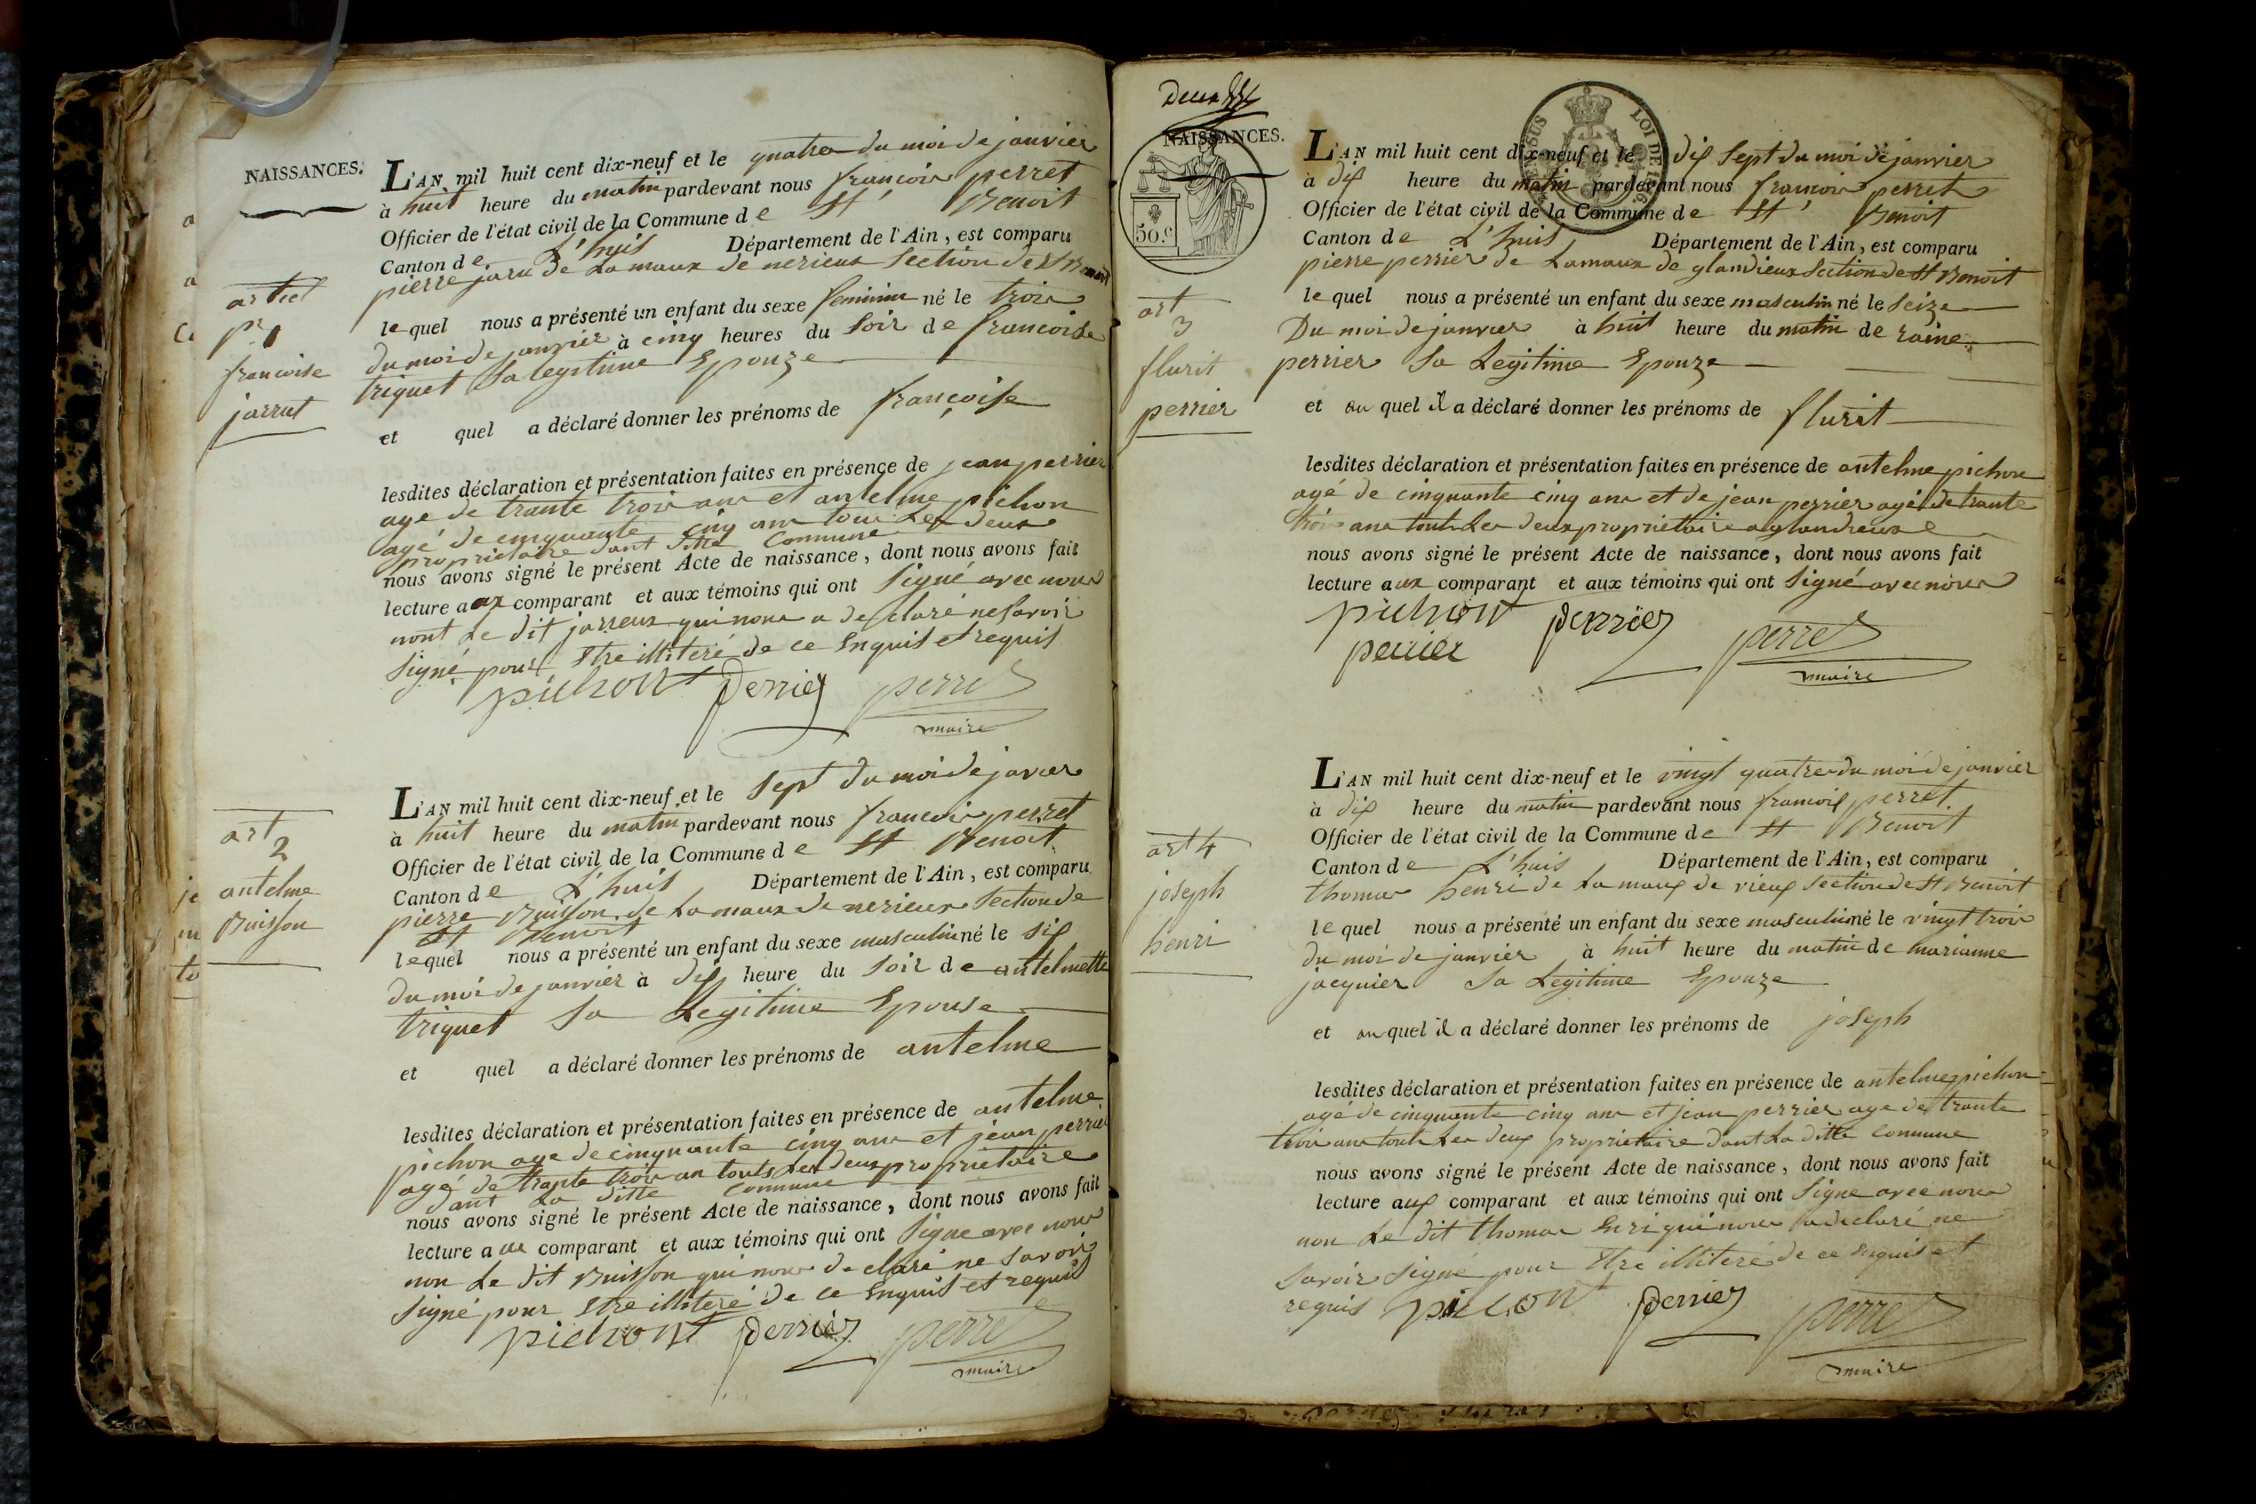 NAISSANCES.
L'AN mil huit cent dix-neuf et le quatre du moi de janvier
à huit heure du matin pardevant nous francoir perret
Officier de l'état civil de la Commune de St Benoit
Canton de L'huis Département de l'Ain, est comparu
pierre jaru de Lamaux de nerieux Section de St Benoit
lequel nous a présenté un enfant du sexe feminin né le troir
du moi de janvier à cinq heures du Soir de francoise
triquet Sa legitime Epouze
et quel a déclaré donner les prénoms de françoise
lesdites déclaration et présentation faites en présence de jean perrier
age de trante troir anr et antelme pichon
agé de cinquante cinq anr tour Les deux
propriétaire dant ditte Commune
nous avons signé le présent Acte de naissance, dont nous avons fait
lecture aux comparant et aux témoins qui ont Signé avec nour
nont Le dit jarreux qui nour a declaré ne Savoir
Signé pour Etre illiteré de ce Enquis et requis
pichont perrier perret
maire
articl
pr 1
francoise
jarrut
L'AN mil huit cent dix-neuf et le Sept du moi de javier
à huit heure du matin pardevant nous francoir perret
Officier de l'état civil de la Commune de St Benoit
Canton de L'huis Département de l'Ain, est comparu
pierre Buisson de Lamaux de nerieux Section de
St Benoit
lequel nous a présenté un enfant du sexe masculin né le six
Du moi de janvier à dix heure du Soir de antelmette
triquet Sa Legitime Epouse
et quel a déclaré donner les prénoms de antelme
lesdites déclaration et présentation faites en présence de antelme
pichon age de cinquante cinq anr et jean perrier
agé de trante troir an touts Les deux propriétaire
dant La ditte Commune
nous avons signé le présent Acte de naissance, dont nous avons fait
lecture au comparant et aux témoins qui ont Signe avec nour
non Le dit Buisson qui nour declaré ne Savoir
Signé pour Etre illiteré de ce Enquis et requis
pichont perrier perret
maire
art
2
antelme
Buisson
NAISSANCES.
50.c
LOI DE 1816.
L'AN mil huit cent dix-neuf et le dix Sept du moi de janvier
à dix heure du matin pardevant nous francoir perret
Officier de l'état civil de la Commune de St Benoit
Canton de L'huis Département de l'Ain, est comparu
pierre perrier de Lamaux de glandieux Section de St Benoit
lequel nous a présenté un enfant du sexe masculin né le Seize
Du moi de janvier à huit heure du matin de raine
perrier Sa Legitime Epouze
et au quel il a déclaré donner les prénoms de flurit
lesdites déclaration et présentation faites en présence de antelme pichon
agé de cinquante cinq anr et de jean perrier agé de trante
troir anr touts Les deux propriétaire a glandieux
nous avons signé le présent Acte de naissance, dont nous avons fait
lecture aux comparant et aux témoins qui ont Signé avec nour
pichont perrier perret
perrier maire
art
3
flurit
perrier
L'AN mil huit cent dix-neuf et le vingt quatre du moi de janvier
à dix heure du matin pardevant nous francois perret
Officier de l'état civil de la Commune de St Benoit
Canton de L'huis Département de l'Ain, est comparu
thomar henri de Lamaux de vieux Section de St Benoit
lequel nous a présenté un enfant du sexe masculin né le vingt troir
du moi de janvier à huit heure du matin de marianne
jacquier Sa Legitime Epouze
et au quel il a déclaré donner les prénoms de joseph
lesdites déclaration et présentation faites en présence de antelme pichon
agé de cinquante cinq anr et jean perrier age de trante
troir anr touts Les deux propriétaire dant La ditte Commune
nous avons signé le présent Acte de naissance, dont nous avons fait
lecture aux comparant et aux témoins qui ont Signe avec nour
non Le dit thomar Enri qui nour a declaré ne
Savoir Signé pour Etre illiteré de ce Enquis et
requis pichont perrier perret
maire
art 4
joseph
henri